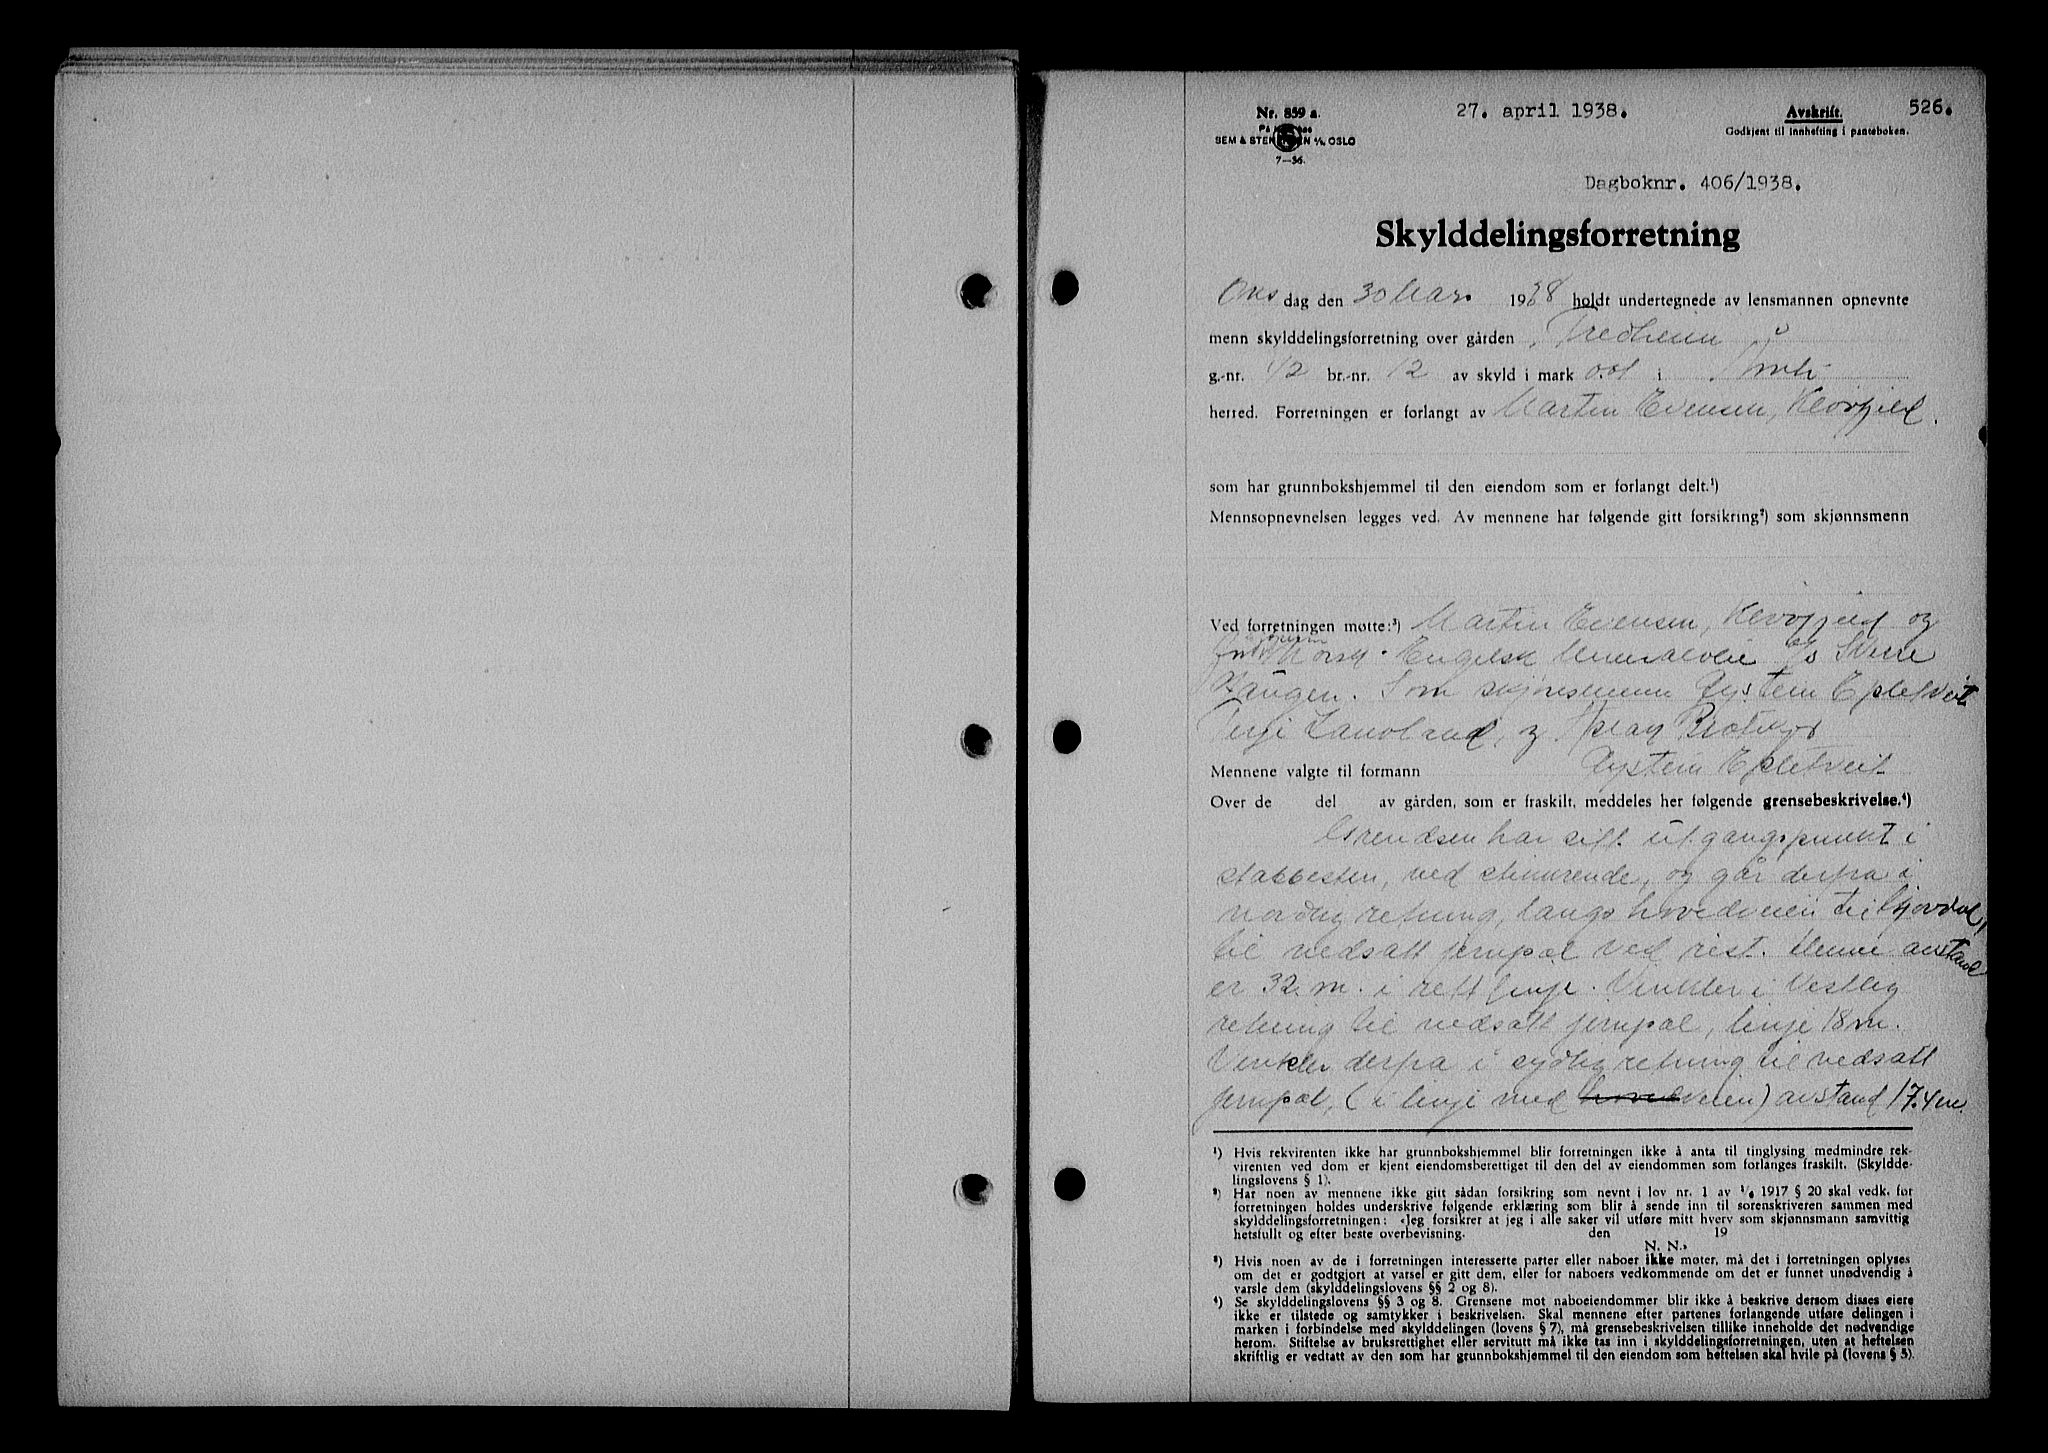 Nr. 859 a.
27. april 1938.
Avskrift.
526.
Godkjent til innhefting i panteboken.
SEM & STEN EN A/S, OSLO
7—36.
Dagboknr. 406/1938.
Skylddelingsforretning
Ons dag den 30 Mars 1938 holdt undertegnede av lensmannen opnevnte
menn skylddelingsforretning over gården Fredheim
g.-nr. 42 br.-nr. 12 av skyld i mark 0.01 i Åmli
herred. Forretningen er forlangt av Martin Evensen, Klovfjell.
som har grunnbokshjemmel til den eiendom som er forlangt delt.¹)
Mennsopnevnelsen legges ved. Av mennene har følgende gitt forsikring²) som skjønnsmenn
Ved forretningen møtte:³) Martin Evensen, Klovfjell og
Norsk - Engelsk Mineralolie
Haugen. Som skjønsmenn Øystein Epletveit
Terje Lauvland, og
Mennene valgte til formann Øystein Epletveit
Over de del av gården, som er fraskilt, meddeles her følgende grensebeskrivelse.⁴)
Grendsen har sitt utgangspunkt i
stabbesten, ved stikkrende, og går derfra i
nordlig retning, langs hovedveien til Gjøvdal,
til nedsatt jernpål ved rist. Denne avstand
er 32. m. i rett linje. Vinkler i Vestlig
retning til nedsatt jernpål, linje 18 m.
Vinkler derfra i sydlig retning til nedsatt
jernpål, (i linje med hovedveien) avstand 17.4 m.
¹) Hvis rekvirenten ikke har grunnbokshjemmel blir forretningen ikke å anta til tinglysing medmindre rek-
virenten ved dom er kjent eiendomsberettiget til den del av eiendommen som forlanges fraskilt. (Skyldde-
lingslovens § 1).
²) Har noen av mennene ikke gitt sådan forsikring som nevnt i lov nr. 1 av ¹/₆ 1917 § 20 skal vedk. før
forretningen holdes underskrive følgende erklæring som blir å sende inn til sorenskriveren sammen med
skylddelingsforretningen: «Jeg forsikrer at jeg i alle saker vil utføre mitt hverv som skjønnsmann samvittig
hetsfullt og efter beste overbevisning. den 19
N. N.»
³) Hvis noen av de i forretningen interesserte parter eller naboer ikke møter, må det i forretningen oplyses
om det er godtgjort at varsel er gitt dem, eller for naboers vedkommende om det er funnet unødvendig å
varsle dem (skylddelingslovens §§ 2 og 8).
⁴) Se skylddelingslovens §§ 3 og 8. Grensene mot naboeiendommer blir ikke å beskrive dersom disses eiere
ikke er tilstede og samtykker i beskrivelsen. Skal mennene efter partenes forlangende utføre delingen i
marken i forbindelse med skylddelingen (lovens § 7), må grensebeskrivelsen tillike inneholde det nødvendige
herom. Stiftelse av bruksrettighet eller servitutt må ikke tas inn i skylddelingsforretningen, uten at heftelsen
skriftlig er vedtatt av den som har grunnbokshjemmel til den eiendom som heftelsen skal hvile på (lovens § 5).